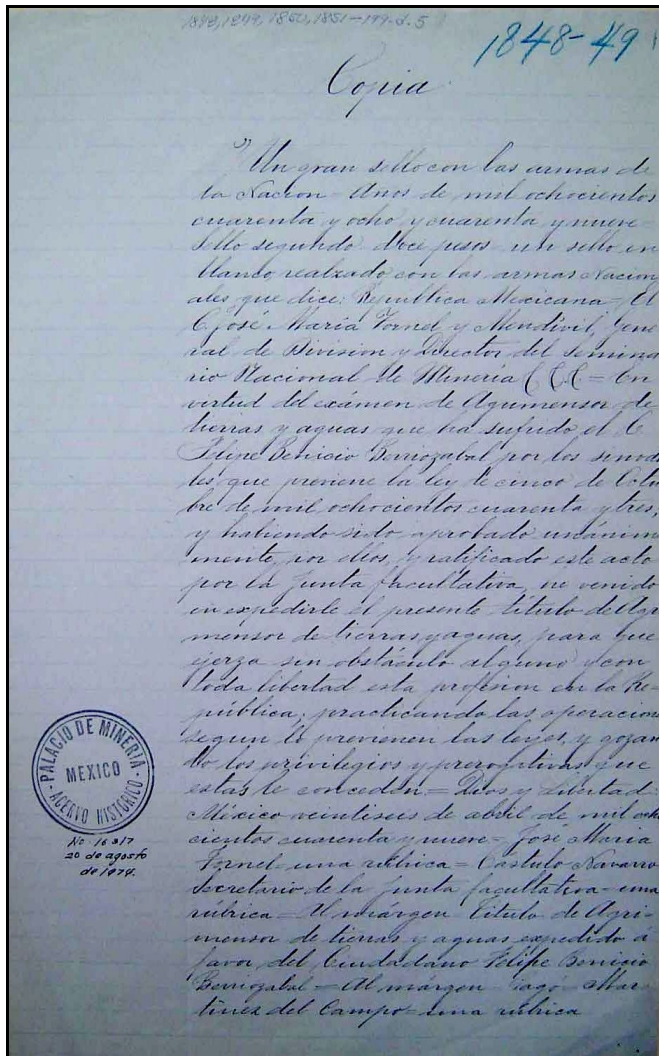 1848, 1849, 1850, 1851-199-d.5
1848-49
Copia
"Un gran sello con las armas de
la Nacion = Años de mil ochocientos
cuarenta y ocho y cuarenta y nueve =
Sello segundo doce pesos = un sello en
blanco realzado con las armas Nacion
ales que dice: Republica Mexicana = El
C. José Maria Tornel y Mendivil, Gene
ral de Division y Director del Semina
rio Nacional de Mineria = En
virtud del exámen de Agrimensor de
tierras y aguas que ha sufrido el C.
Felipe Benicio Berriozabal por los sinoda
les que previene la ley de cinco de Octu
bre de mil ochocientos cuarenta y tres,
y habiendo sido aprobado unánime
mente, por ellos, y ratificado este acto
por la Junta facultativa, he venido
en expedirle el presente titulo de Agri
mensor de tierras y aguas, para que
ejerza sin obstáculo alguno y con
toda libertad esta profesion en la Re-
pública; practicando las operacion
segun lo previenen las leyes, y gozan
do los privilegios y prerogativas que
estas le conceden = Dios y Libertad.
México veintiseis de abril de mil ocho
cientos cuarenta y nueve = José Maria
Tornel = una rúbrica = Castulo Navarro
Secretario de la Junta facultativa = una
rúbrica = Al márgen = Titulo de Agri-
mensor de tierras y aguas expedido á
favor del Ciudadano Felipe Benicio
Berriozabal = Al margen = Mar
tinez del Campo = una rúbrica
PALACIO DE MINERIA
MEXICO
ACERVO HISTORICO
No. 16317
20 de agosto
de 1974.